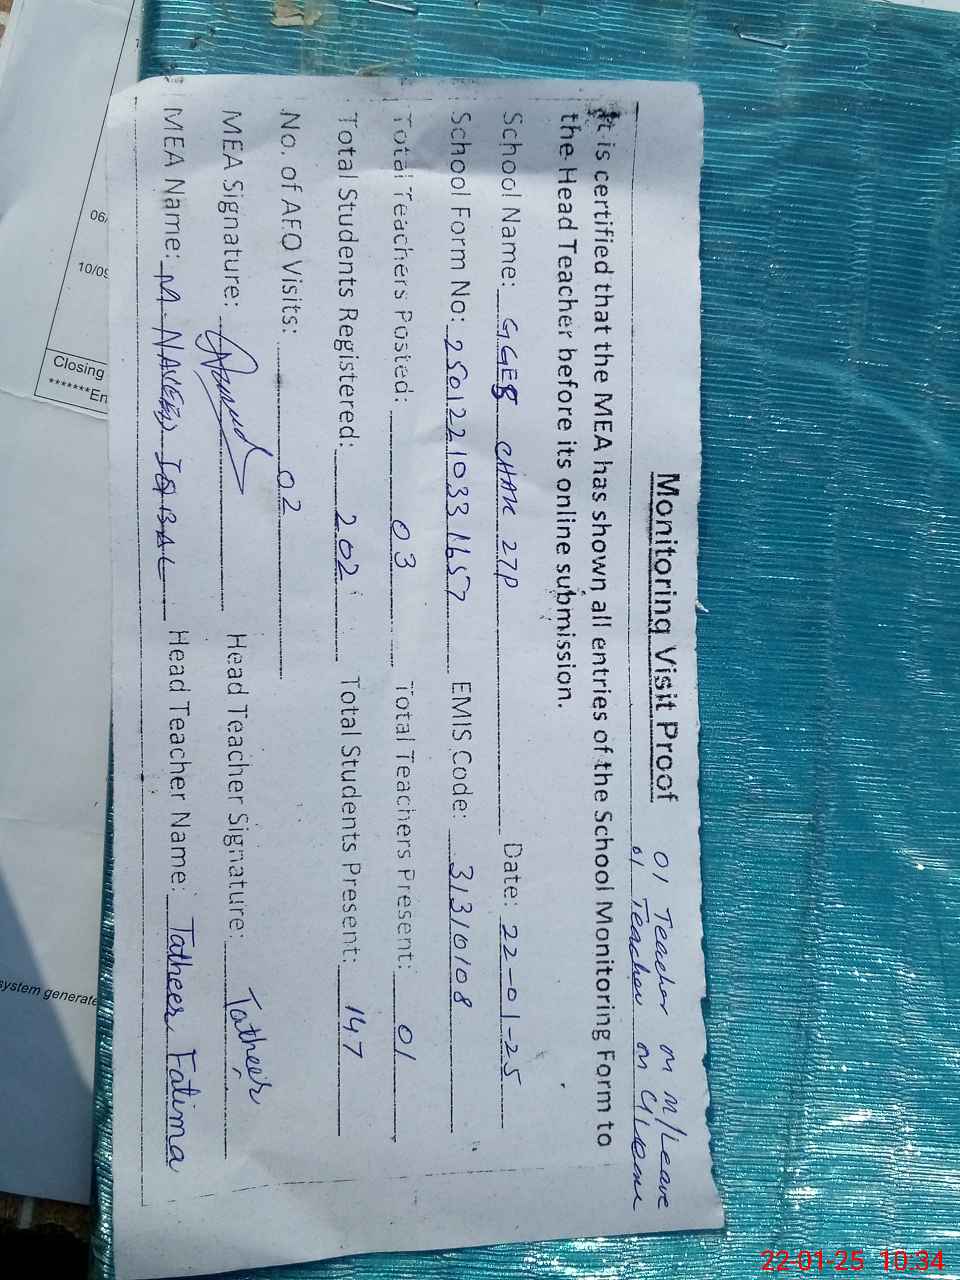 Monitoring Visit Proof
01 Teacher on M/Leave
01 Teacher on C/Leave
It is certified that the MEA has shown all entries of the School Monitoring Form to
the Head Teacher before its online submission.
School Name: GGES CHAK 27P Date: 22-01-25
School Form No: 2501221033 1657 EMIS Code: 31310108
Total Teachers Posted: 03 Total Teachers Present: 01
Total Students Registered: 202 Total Students Present: 147
No. of AEO Visits: 02
MEA Signature: Head Teacher Signature: Tatheer
MEA Name: M. NAVEED IQBAL Head Teacher Name: Tatheer Fatima
06/
10/09
Closing
*******En
system generate
22-01-25 10:34